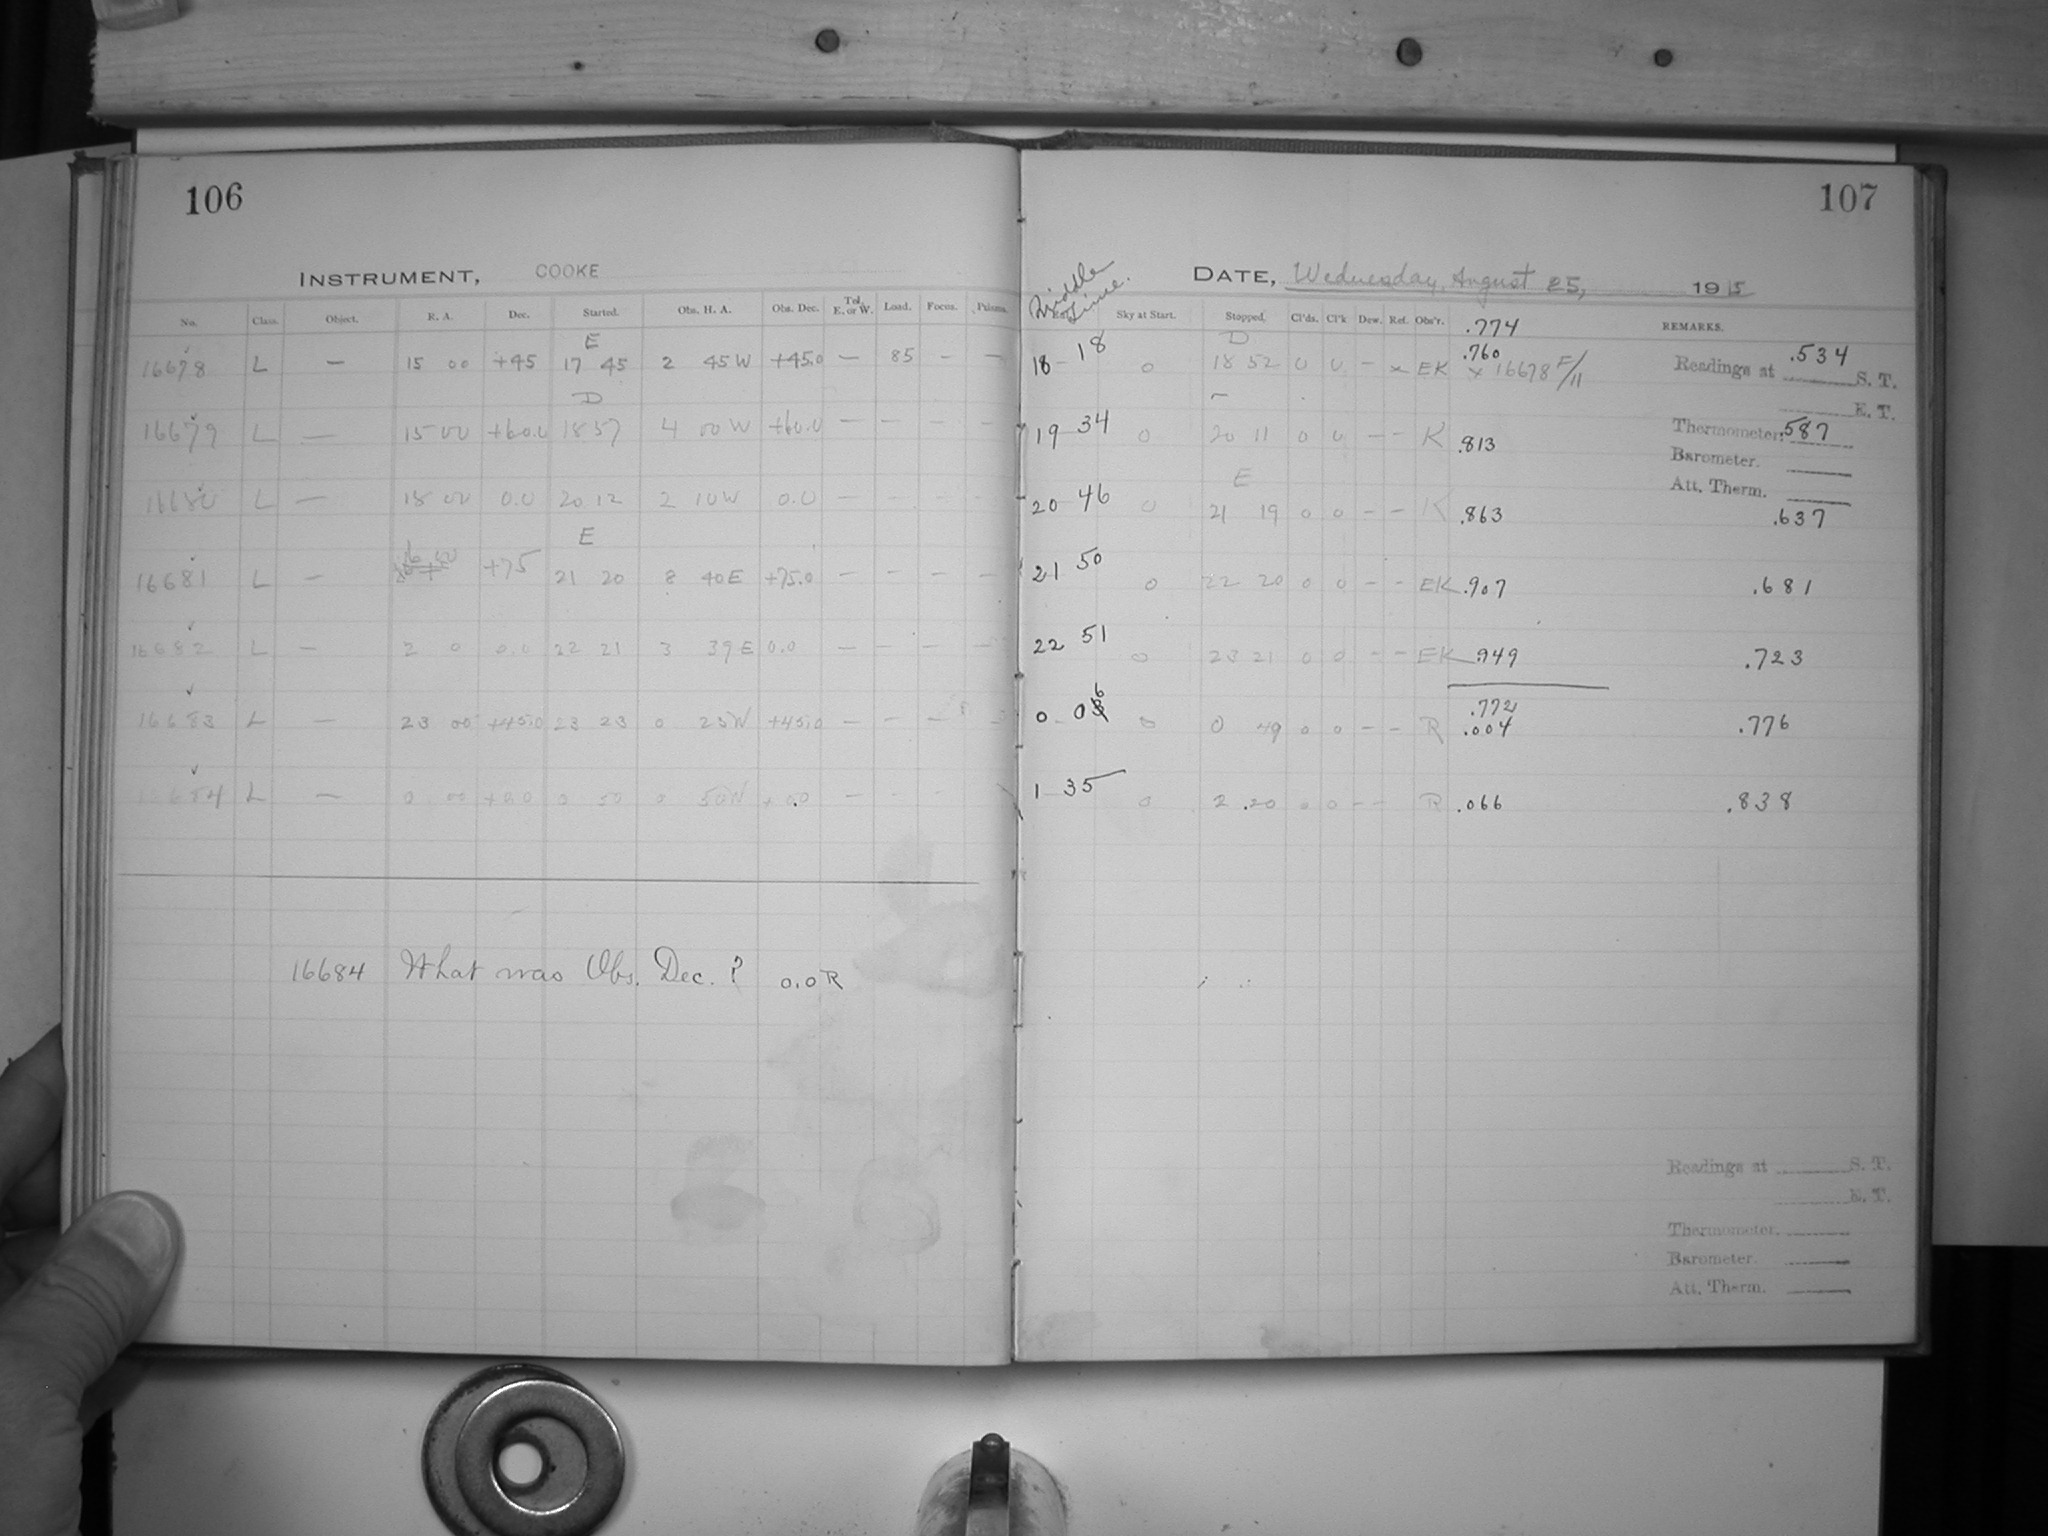 106
INSTRUMENT, COOKE
No. Class. Object. R. A. Dec. Started. Obs. H. A. Obs. Dec. Tel. E. or W. Load. Focus. Prisms.
E
16678 L — 15 00 +45 17 45 2 45 W +45.0 — 85 — —
D
16679 L — 15 00 +60.0 18 57 4 00 W +60.0 — — — —
16680 L — 18 00 0.0 20 12 2 10 W 0.0 —
E
16681 L — +75 21 20 8 40 E +75.0 — — — —
16682 L — 2 0 0.0 22 21 3 39 E 0.0 — — — —
16683 L — 23 00 +45.0 23 23 0 23 W +45.0 — — — —
16684 L — 0 00 +0.0 0 50 0 50 W +0.0 — —
16684 What was Obs. Dec.? 0.0 R
107
DATE, Wednesday, August 25, 1915
Middle Time.
Sky at Start. Stopped. Cl'ds. Cl'k Dew. Ref. Obs'r. .774 REMARKS.
D
18 18 0 18 52 0 0 — x EK .760 x 16678 F/11
Readings at .534 S. T.
E. T.
19 34 0 20 11 0 0 — — K .813
Thermometer. .587
Barometer.
E
Att. Therm.
20 46 0 21 19 0 0 — — K .863 .637
21 50 0 22 20 0 0 — — EK .907 .681
22 51 0 23 21 0 0 — — EK .949 .723
.772
0 06 0 0 49 0 0 — — R .004 .776
1 35 0 2 20 0 0 — — R .066 .838
Readings at S. T.
E. T.
Thermometer.
Barometer.
Att. Therm.